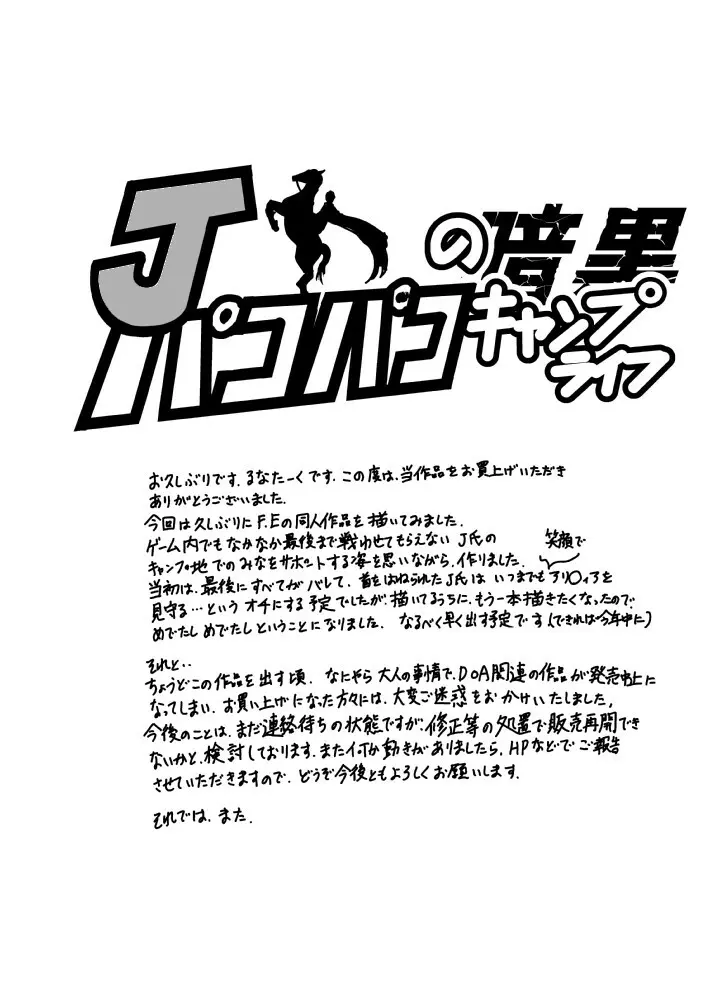 Jの暗黒
パコパコキャンプ
ライフ
お久しぶりです。るなたーくです。この度は、当作品をお買上げいただき
ありがとうございました。
今回は久しぶりにF.Eの同人作品を描いてみました。
ゲーム内でもなかなか最後まで戦わせてもらえないJ氏の
キャンプ地でのみなをサポートする姿を思いながら、作りました。
笑顔で
当初は、最後にすべてがバレて、首をはねられたJ氏はいつまでもアリ○ィアを
見守る…というオチにする予定でしたが、描いてるうちに、もう一本描きたくなったので、
めでたしめでたしということになりました。なるべく早く出す予定です(できれば今年中に)
それと..
ちょうどこの作品を出す頃、なにやら大人の事情で、DoA関連の作品が発売中止に
なってしまい、お買い上げになった方々には、大変ご迷惑をおかけいたしました。
今後のことは、まだ連絡待ちの状態ですが、修正等の処置で販売再開でき
ないかと、検討しております。また動きがありましたら、HPなどでご報告
させていただきますので、どうぞ今後ともよろしくお願いします。
それでは、また。